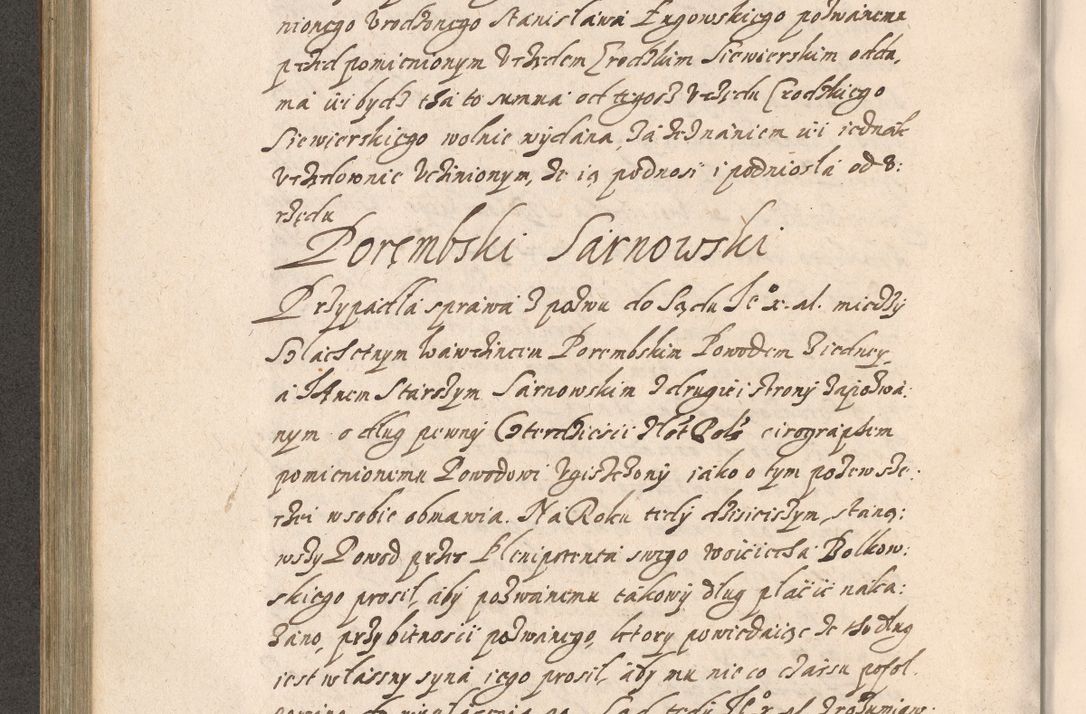 nionego Vrodzonego Stanisława Ługowskiego pozwanemu
przed pomienionym Vrzędem Grodzkim Siewierskim odda,
ma iei bydz tha to summa od tegosz Vrzędu Grodzkiego
Siewierskiego wolnie wydana, za zeznaniem iei iednak
Vrzędownie Vczinionym, ze ią podnosi i podniosła od V:
rzędu
Porembski Sarnowski
Przypadła sprawa z pozwu do Sądu Je° x. al. miedzy
Szlachetnym Wawrzincem Porembskim Powodem z iedney
a Janem Starszym Sarnowskim z drugiei strony zapozwa:
nym o dług pewny Czterdziesci Złot Pols cirographem
pomienionemu Powodowi Vgiszczony iako o tym pozew sze:
rzei w sobie obmawia. Na Roku tedy dzisieiszym, stang:
wszy Powod przez Plenipotenta swego Woiciecha Bolkow:
skiego prosił, aby pozwanemu takowy dług płacić naka:
zano, przy bitnosci pozwanego, ktory powiedaiąc ze tho dług
iest własny syna iego prosił, aby mu nieco czassu pofol.